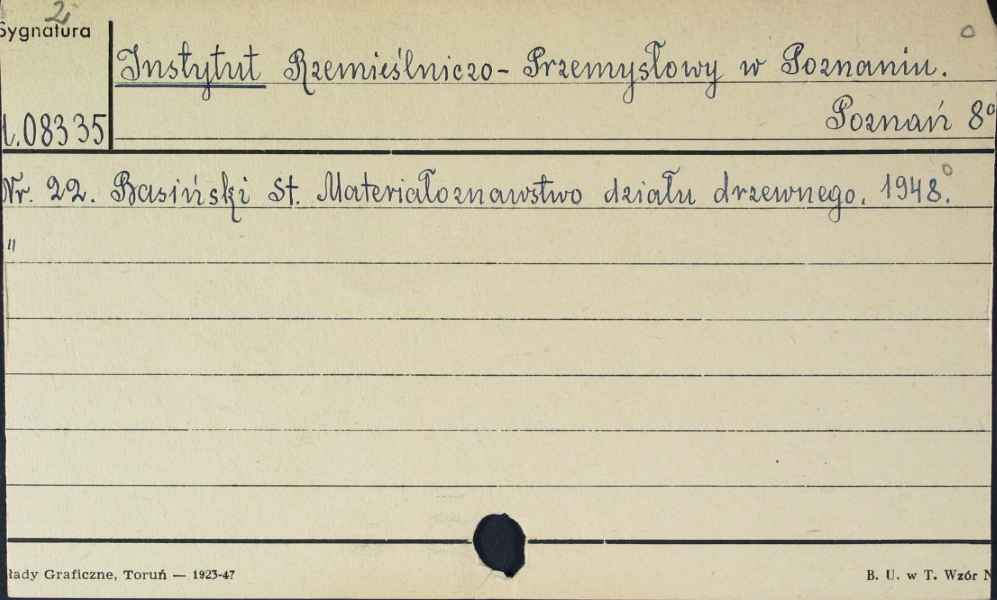 2
Sygnatura
Instytut Rzemieślniczo-Przemysłowy w Poznaniu.
08335
Poznań 8°
Nr. 22. Basiński St. Materiałoznawstwo działu drzewnego. 1948.
"
łady Graficzne, Toruń — 1923-47
B. U. w T. Wzór N